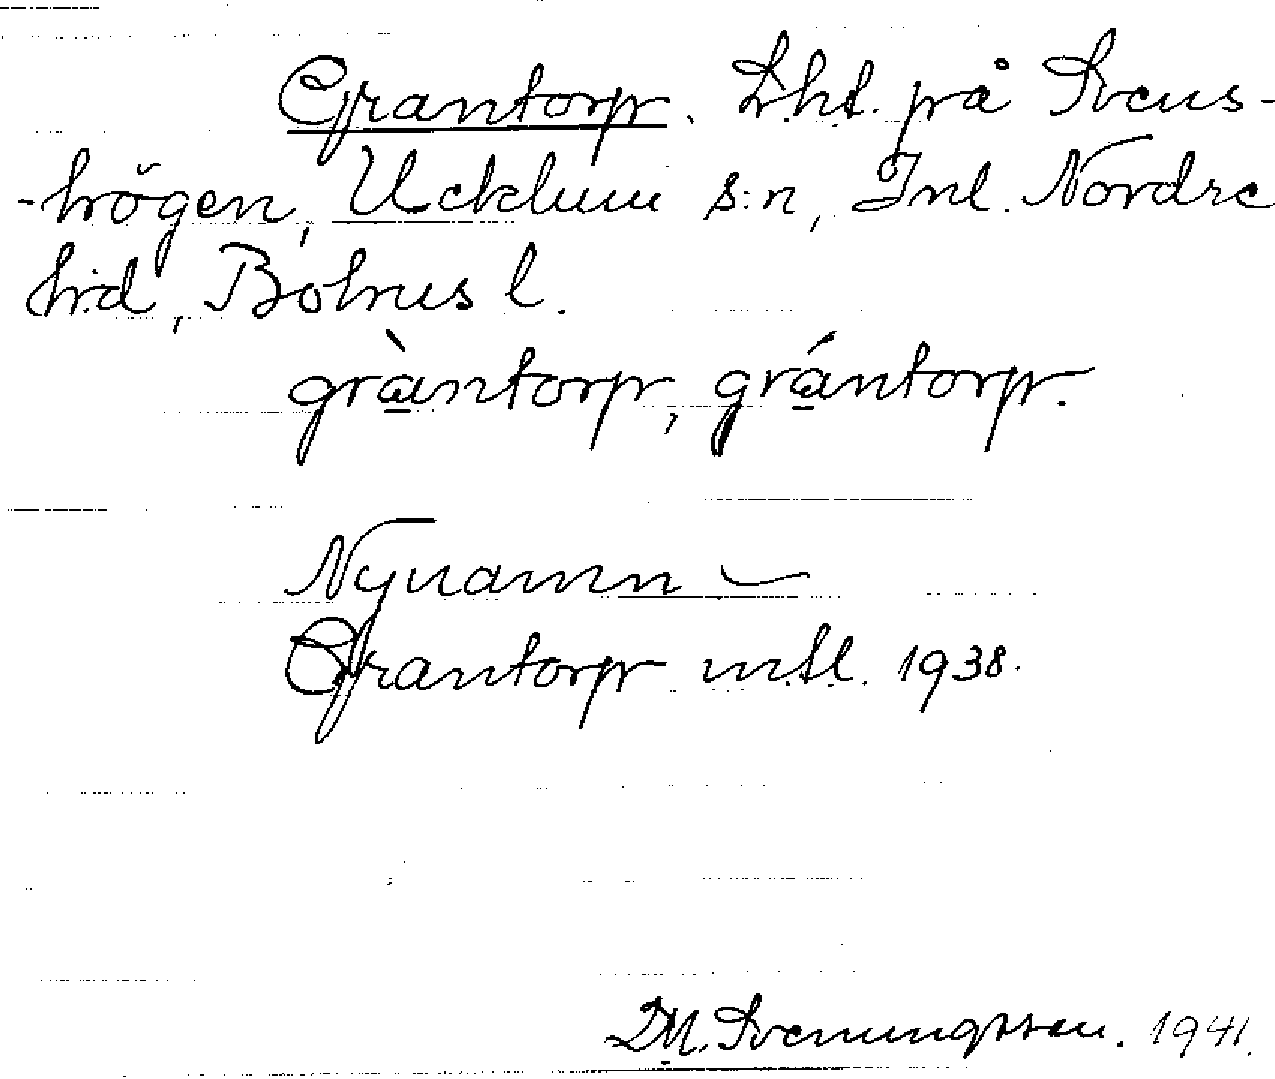 Grantorp. Lht. på Svens-
-högen, Ucklum s:n, Inl. Nordre
h:d, Bohus l.
gràntorp, grántorp.
Nynamn
Grantorp mtl. 1938.
D.M. Svenungsson. 1941.